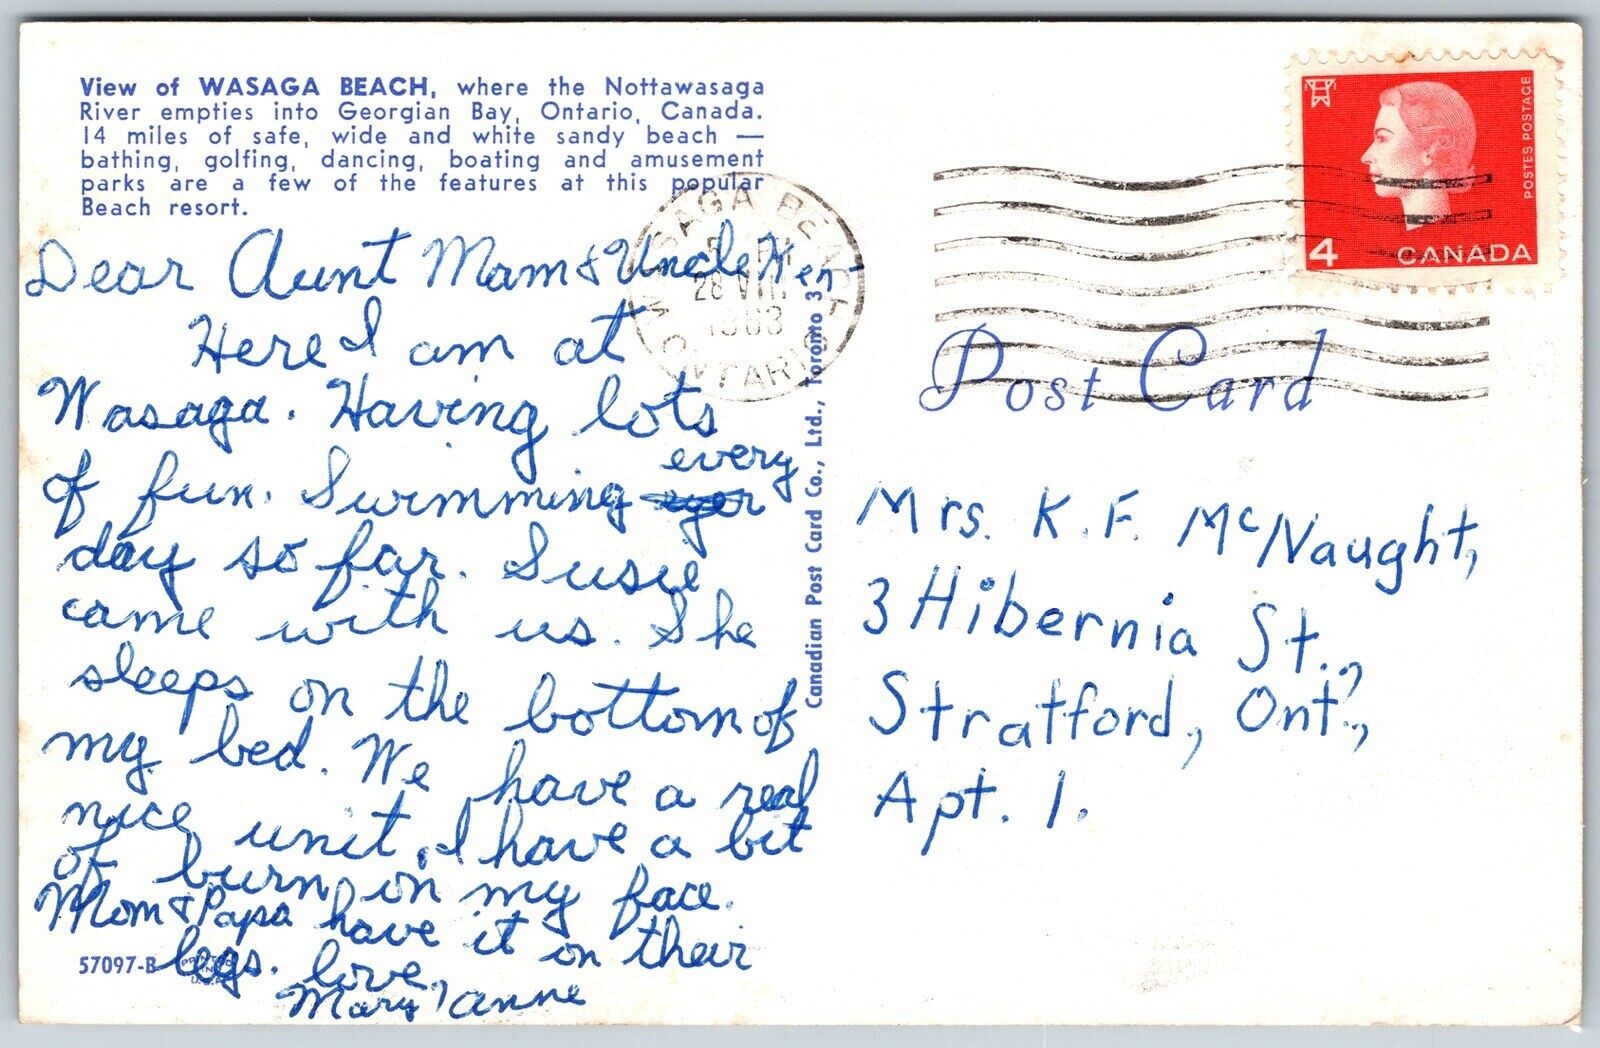 View of WASAGA BEACH, where the Nottawasaga
River empties into Georgian Bay, Ontario, Canada.
14 miles of safe, wide and white sandy beach —
bathing, golfing, dancing, boating and amusement
parks are a few of the features at this popular
Beach resort.
Dear Aunt Mam & Uncle Ken-
Here I am at
Wasaga. Having lots
of fun. Swimming every
day so far. Susie
came with us. She
sleeps on the bottom of
my bed. We have a real
nice unit, I have a bit
of burn on my face.
Mom & Papa have it on their
legs. love,
Mary anne
57097-B
PRINTED
IN
U.S.A.
WASAGA BEACH
PM
VIII
1963
ONTARIO
Canadian Post Card Co., Ltd., Toronto 3
4
CANADA
POSTES POSTAGE
Post Card
Mrs. K. F. McNaught,
3 Hibernia St.,
Stratford, Ont.,
Apt. 1.